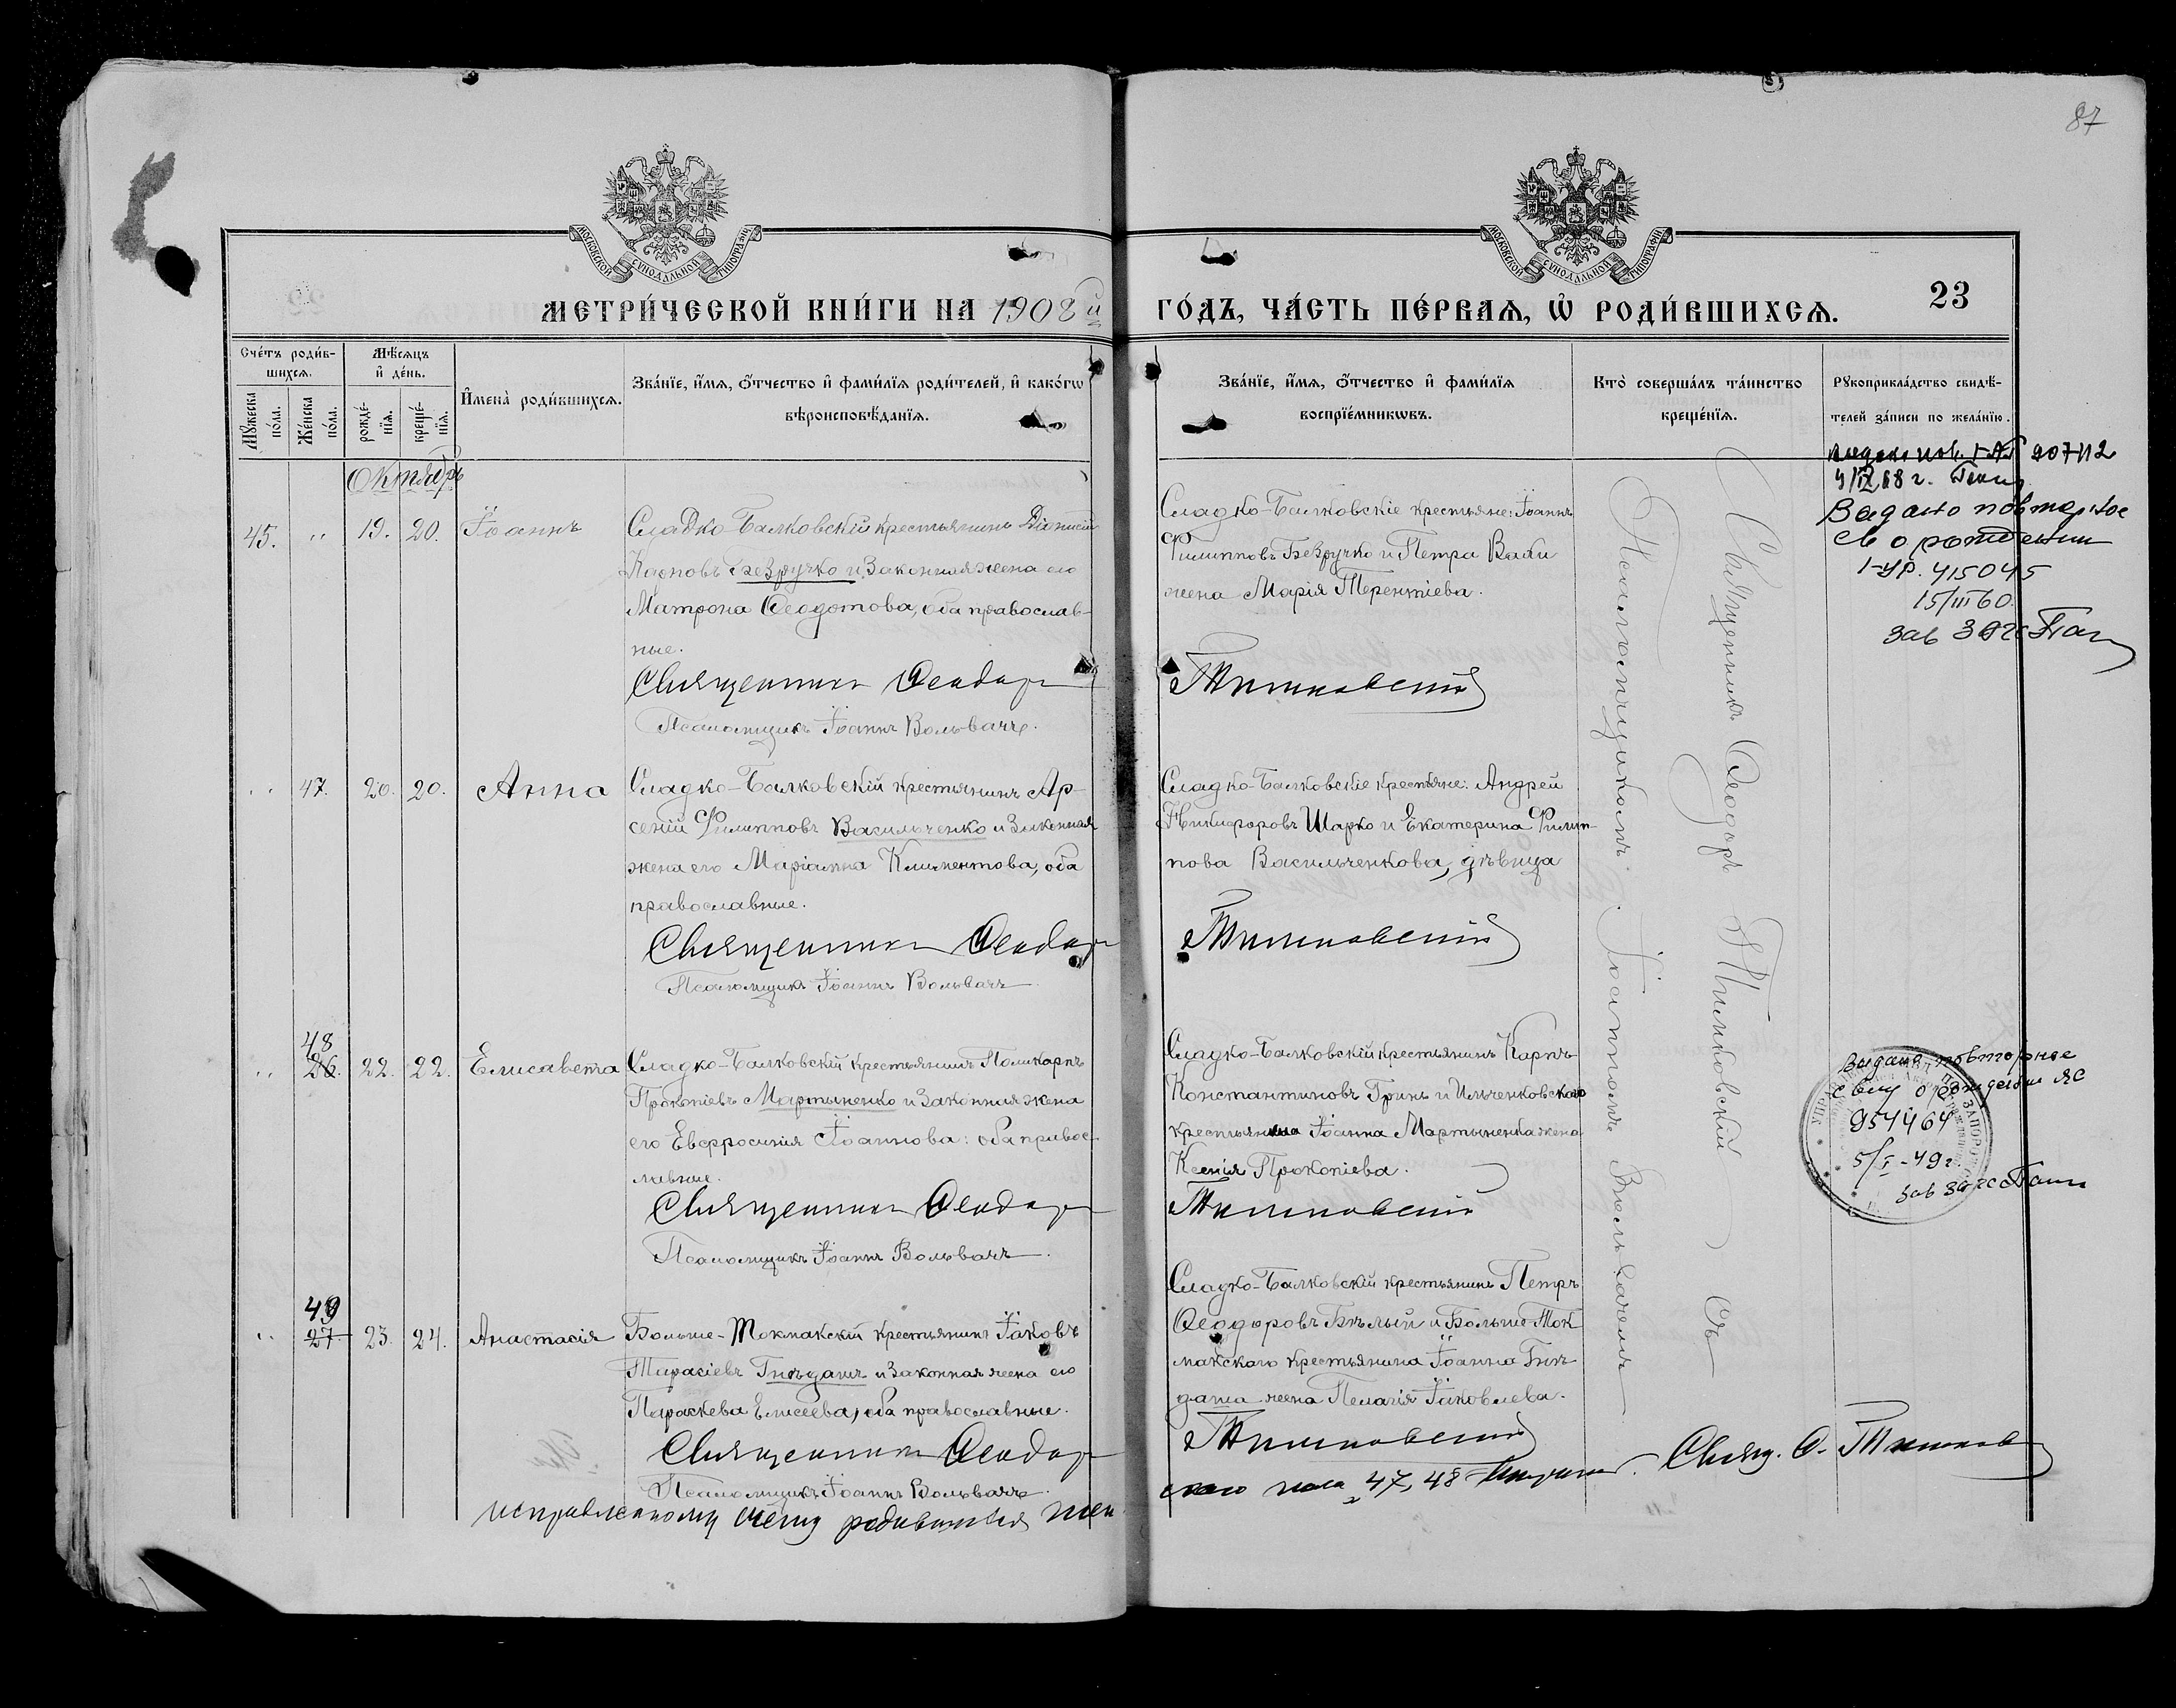 87
МОСКОВСКОЙ СѴНОДАЛЬНОЙ ТИПОГРАФІИ
МОСКОВСКОЙ СѴНОДАЛЬНОЙ ТИПОГРАФІИ
МЕТРИ́ЧЕСКОЙ КНИ́ГИ НА 1908й ГО́ДЪ, ЧА́СТЬ ПЕ́РВАѦ, Ѿ РОДИ́ВШИХСѦ. 23
Сче́тъ роди́в-
шихсѧ.
Мѣ́сѧцъ
и҆ де́нь.
Мꙋ́жеска по́ла.
Же́нска по́ла.
рожде́-
нїѧ.
креще́-
нїѧ.
И҆мена̀ роди́вшихсѧ.
Зва́нїе, и҆́мѧ, ѻ҆́тчество и҆ фами́лїѧ роди́телей, и҆ како́гѡ
вѣроисповѣ́данїѧ.
Зва́нїе, и҆́мѧ, ѻ҆́тчество и҆ фами́лїѧ
воспрїе́мникѡвъ.
Кто̀ соверша́лъ та́инство
креще́нїѧ.
Рꙋкоприкла́дство свидѣ́-
телей за́писи по жела́нїю.
Октябрь
45. " 19. 20. Іоаннъ
Сладко-Балковскій крестьянинъ Діонисій
Карповъ Безручко и законная жена его
Матрона Ѳеодотова, оба православ-
ные.
Священникъ Ѳеодоръ
Псаломщикъ Іоаннъ Вольвачъ.
Сладко-Балковскіе крестьяне: Іоаннъ
Филипповъ Безручко и Петра
жена Марія Терентіева.
Тимковскій
207112
Выдано повторное
св о рождении
415045
15/III 60
зав Загс
" 47. 20. 20. Анна
Сладко-Балковскій крестьянинъ Ар-
сеній Филипповъ Васильченко и законная
жена его Маріанна Климентова, оба
православные.
Священникъ Ѳеодоръ
Псаломщикъ Іоаннъ Вольвачъ
Сладко-Балковскіе крестьяне: Андрей
Никифоровъ Шарко и Екатерина Филип-
пова Васильченкова, дѣвица
Тимковскій
48
" 26. 22. 22. Елисавета
Сладко-Балковскій крестьянинъ Поликарпъ
Прокопіевъ Мартыненко и законная жена
его Евфросинія Іоаннова: оба правос-
лавные.
Священникъ Ѳеодоръ
Псаломщикъ Іоаннъ Вольвачъ.
Сладко-Балковскій крестьянинъ Карпъ
Константиновъ Гринь и Ильченковского
крестьянина Іоанна Мартыненка жена
Ксенія Прокопіева.
Тимковскій
Выдано повторное
о рождении ЯС
954464
5/I-49 г.
зав загс
49
" 27. 23. 24. Анастасія
Больше-Токмакскій крестьянинъ Іаковъ
Тарасіевъ Гнѣдашъ и законная жена его
Параскева Елисеева, оба православные.
Священникъ Ѳеодоръ
Псаломщикъ Іоаннъ Вольвачъ.
Сладко-Балковскій крестьянинъ Петръ
Ѳеодоровъ Бѣлый и Больше-Ток
макского крестьянина Іоанна Гнѣ
даша жена Пелагія Іаковлева.
Тимковскій
Священникъ Ѳеодоръ Тимковскій Съ
Псаломщикомъ Іоанномъ Вольвачемъ
исправленному счету родившихся жен-
ского пола 47, 48
Свящ. Ѳ. Тимковскій